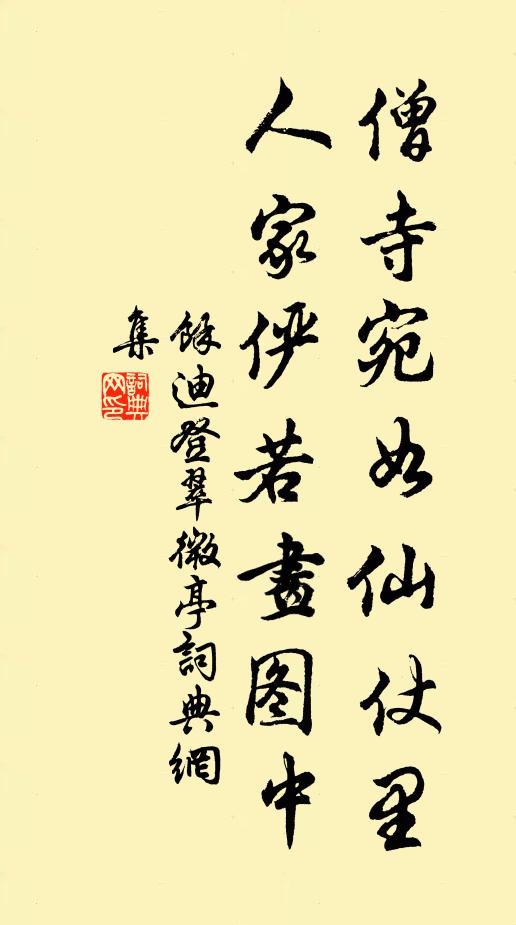 僧寺宛如仙仗里
人家俨若畫图中
馀迪登翠微亭詞典網
集
詞典
网印